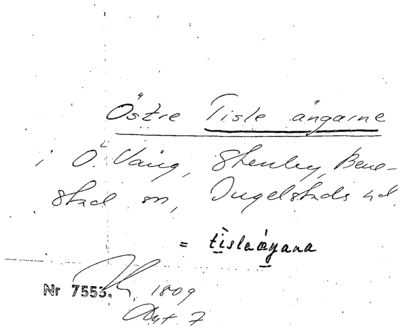 Östre Tisle ängarne
i Ö. Vång, Stenby, Bene-
stad sn, Ingelstads hd.
= tislaäŋana
Nr 7553. 1809
Akt 7